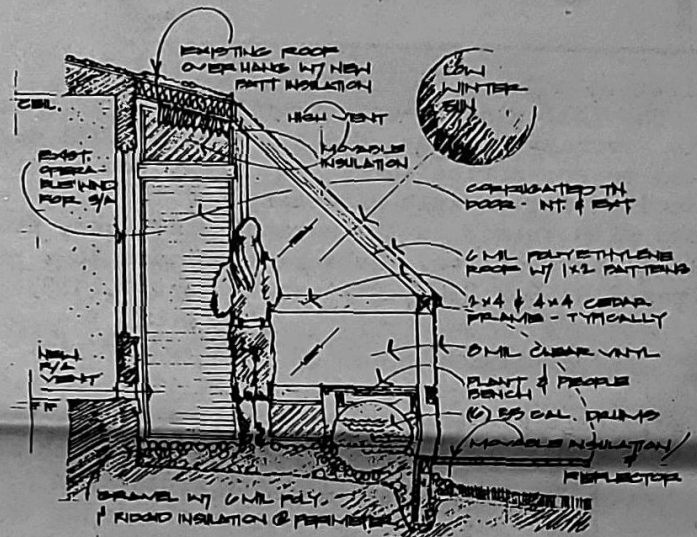 EXISTING ROOF
OVERHANG W/ NEW
BATT INSULATION
LOW
WINTER
SUN
CEIL.
HIGH VENT
MOVABLE
INSULATION
EXIST.
OPERA-
BLE WIND
FOR S/A
CORRUGATED TN
DOOR - INT. & EXT
6 MIL POLYETHYLENE
ROOF W/ 1X2 BATTENS
2x4 & 4x4 CEDAR
FRAME - TYPICALLY
8 MIL CLEAR VINYL
NEW
R/A
VENT
PLANT & PEOPLE
BENCH
F.F.
(6) 55 GAL. DRUMS
MOVABLE INSULATION
&
REFLECTOR
GRAVEL W/ 6 MIL POLY.
& RIDGID INSULATION @ PERIMETER